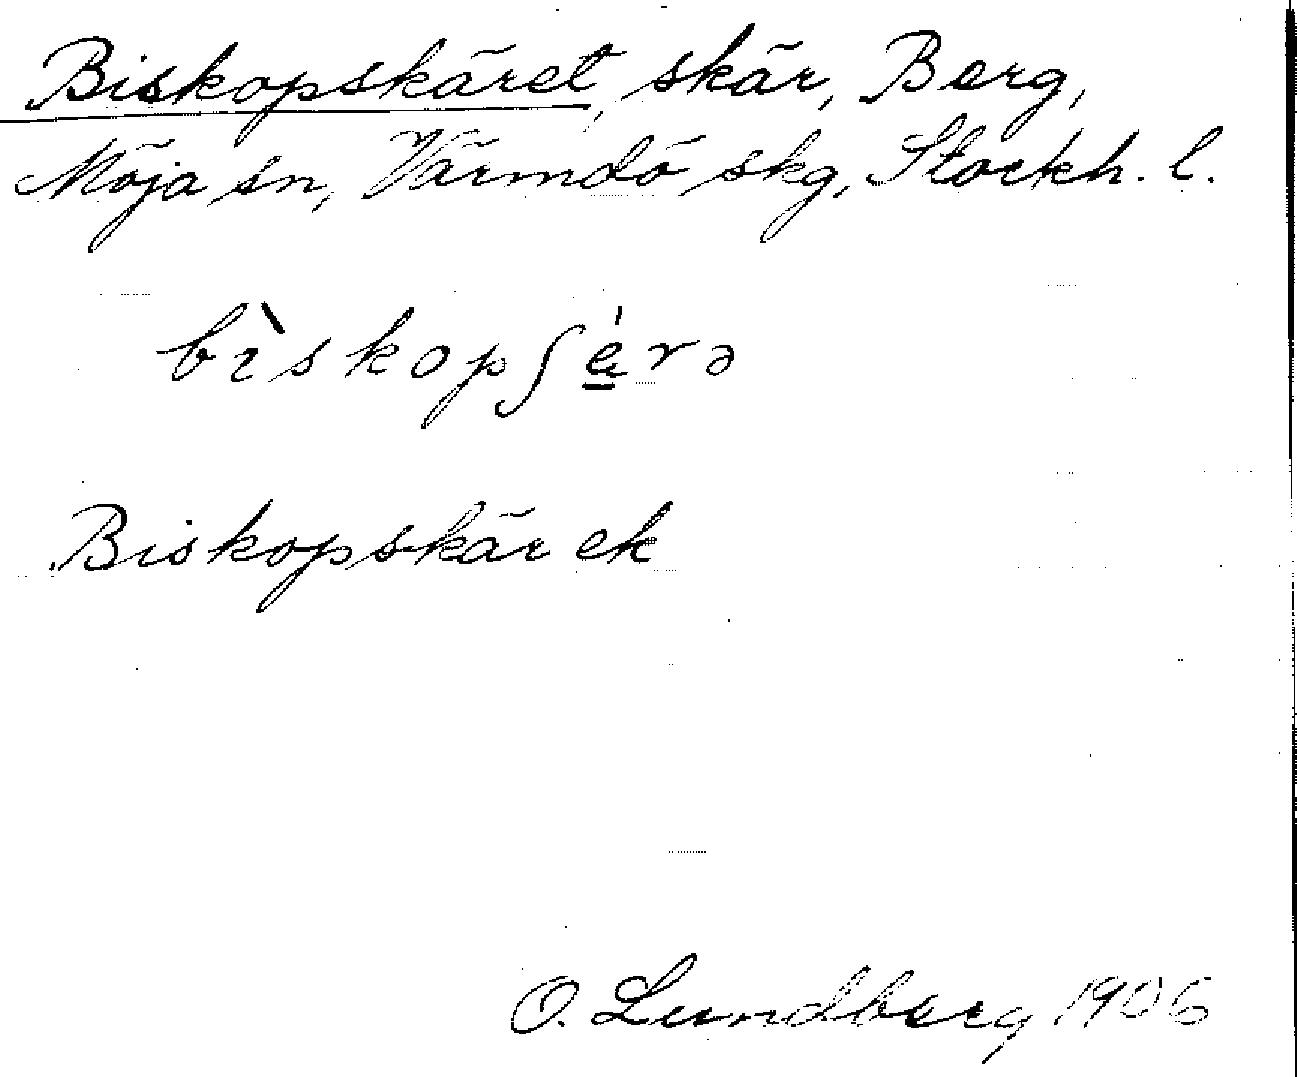 Biskopskäret, skär, Berg,
Möja sn, Värmdö skg, Stockh. l.
bìskopʃé̱rə
Biskopskär ek
O. Lundberg 1906